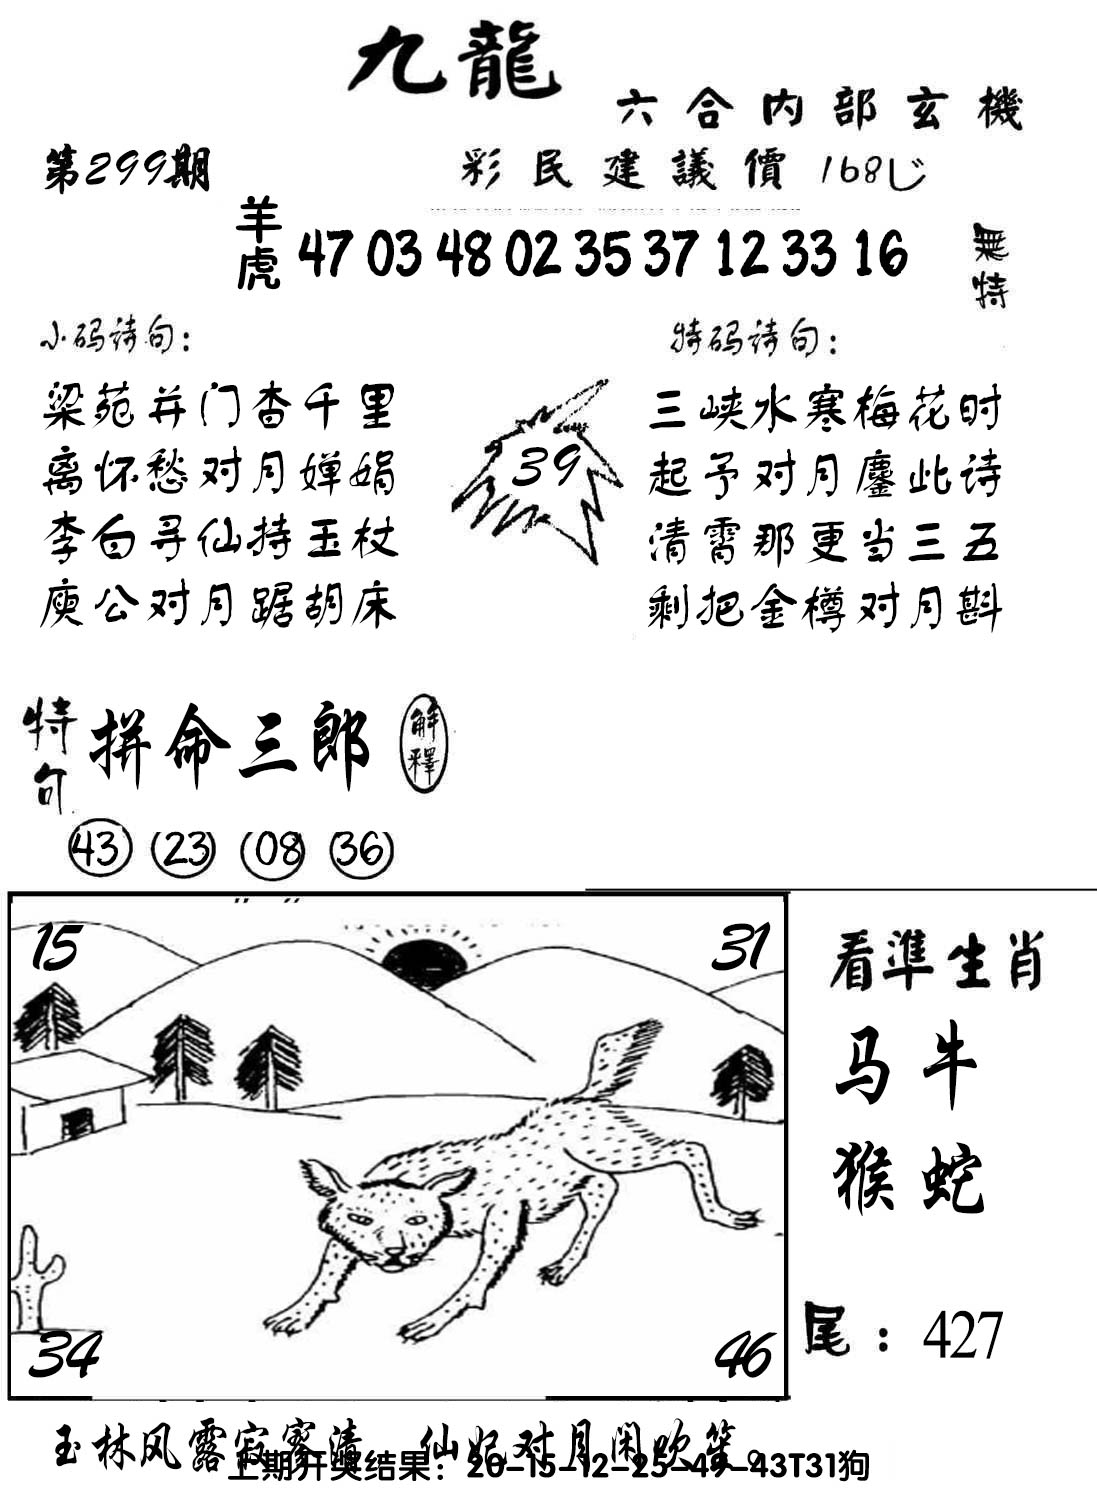 九龍
六合内部玄機
第299期
彩民建議價 168
羊虎 47 03 48 02 35 37 12 33 16 無特
小码诗句：
梁苑并门杳千里
离怀愁对月婵娟
李白寻仙持玉杖
庾公对月踞胡床
39
特码诗句：
三峡水寒梅花时
起予对月鏖此诗
清霄那更当三五
剩把金樽对月斟
特句 拼命三郎 解釋
43 23 08 36
15 31
34 46
看準生肖
马牛
猴蛇
尾：427
玉林风露寂寥清 仙妃对月闲吹笙。
上期开奖结果：20-15-12-25-49-43T31狗